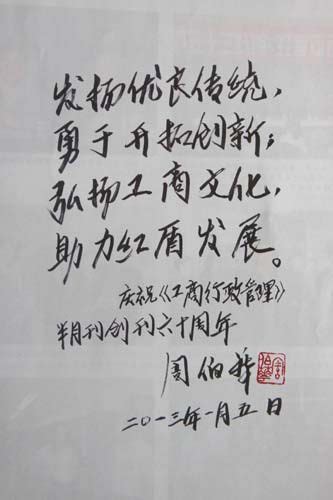 发扬优良传统，
勇于开拓创新；
弘扬工商文化，
助力红盾发展。
庆祝《工商行政管理》
半月刊创刊六十周年
周伯华
二〇一三年一月五日